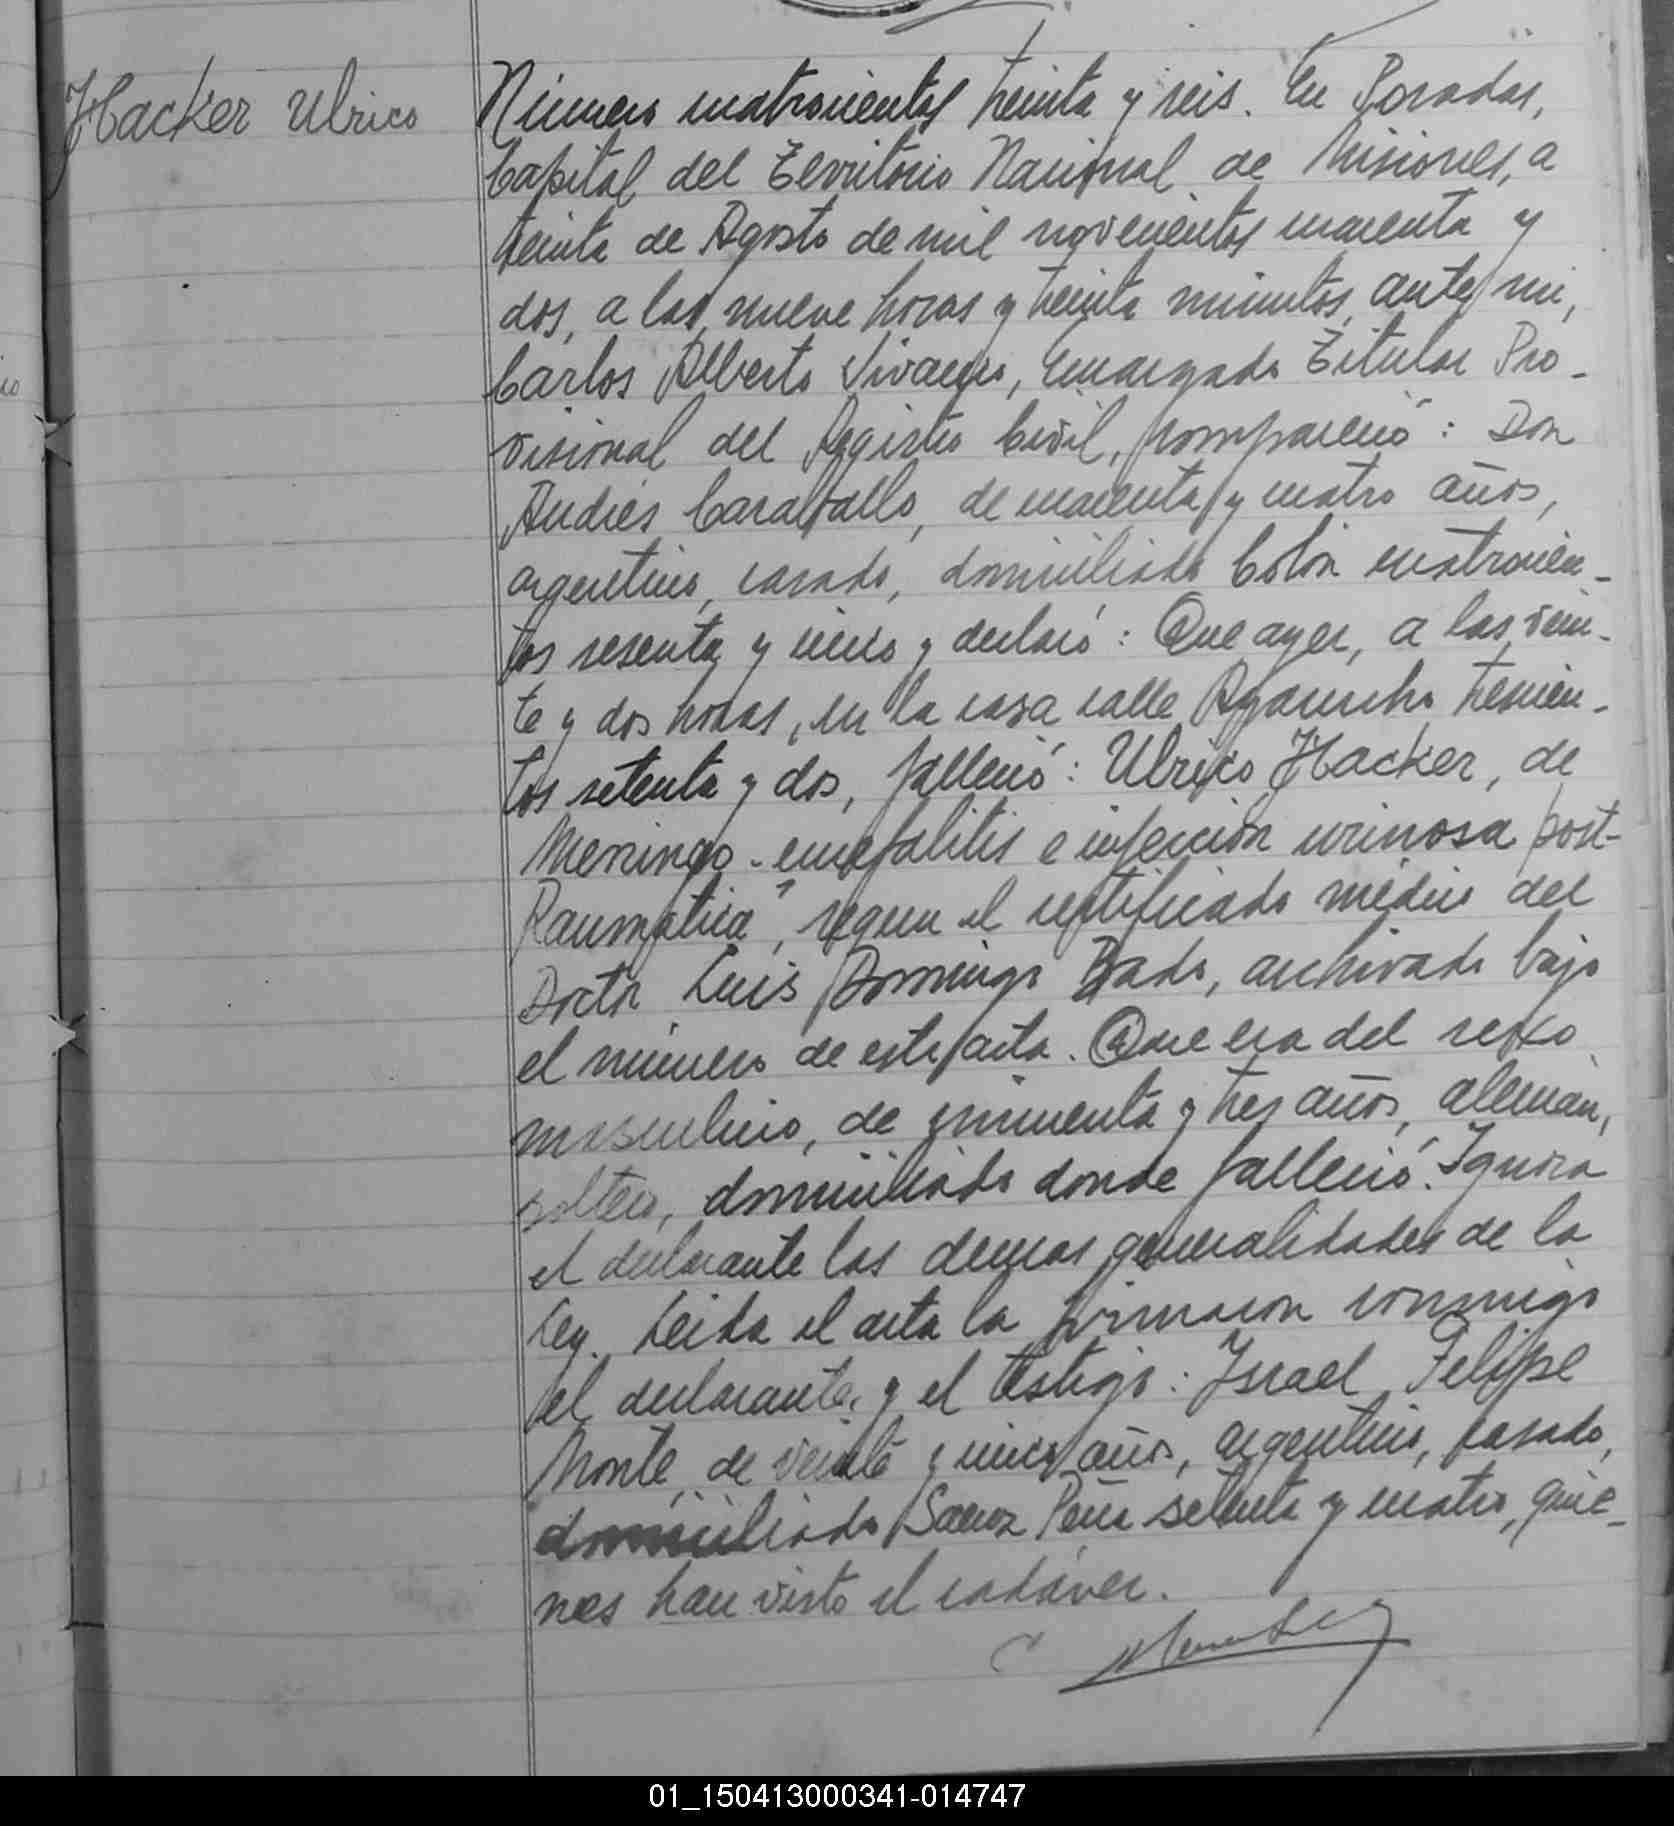 Hacker Ulrico
Número cuatrocientos treinta y seis. En Posadas,
Capital del Territorio Nacional de Misiones, a
treinta de Agosto de mil novecientos cuarenta y
dos, a las nueve horas y treinta minutos, ante mi,
Carlos Alberto Vivanco, Encargado Titular Pro-
visional del Registro Civil, compareció: Don
Andrés Caraballo, de cuarenta y cuatro años,
argentino, casado, domiciliado Colón cuatrocien-
tos sesenta y cinco y declaró: Que ayer, a las vein-
te y dos horas, en la casa calle Ayacucho trescien-
tos setenta y dos, falleció: Ulrico Hacker, de
Meningo-encefalitis e infección urinosa post-
traumática", segun el certificado médico del
Doctor Luis Domingo Dado, archivado bajo
el número de este acta. Que era del sexo
masculino, de cincuenta y tres años, alemán,
soltero, domiciliado donde falleció. Ignora
el declarante las demas generalidades de la
Ley. Leida el acta la firmaron conmigo
el declarante, y el testigo: Israel Felipe
Monte, de veinte y cinco años, argentino, casado,
domiciliado Saenz Peña setenta y cuatro, quie-
nes han visto el cadáver.
01_150413000341-014747